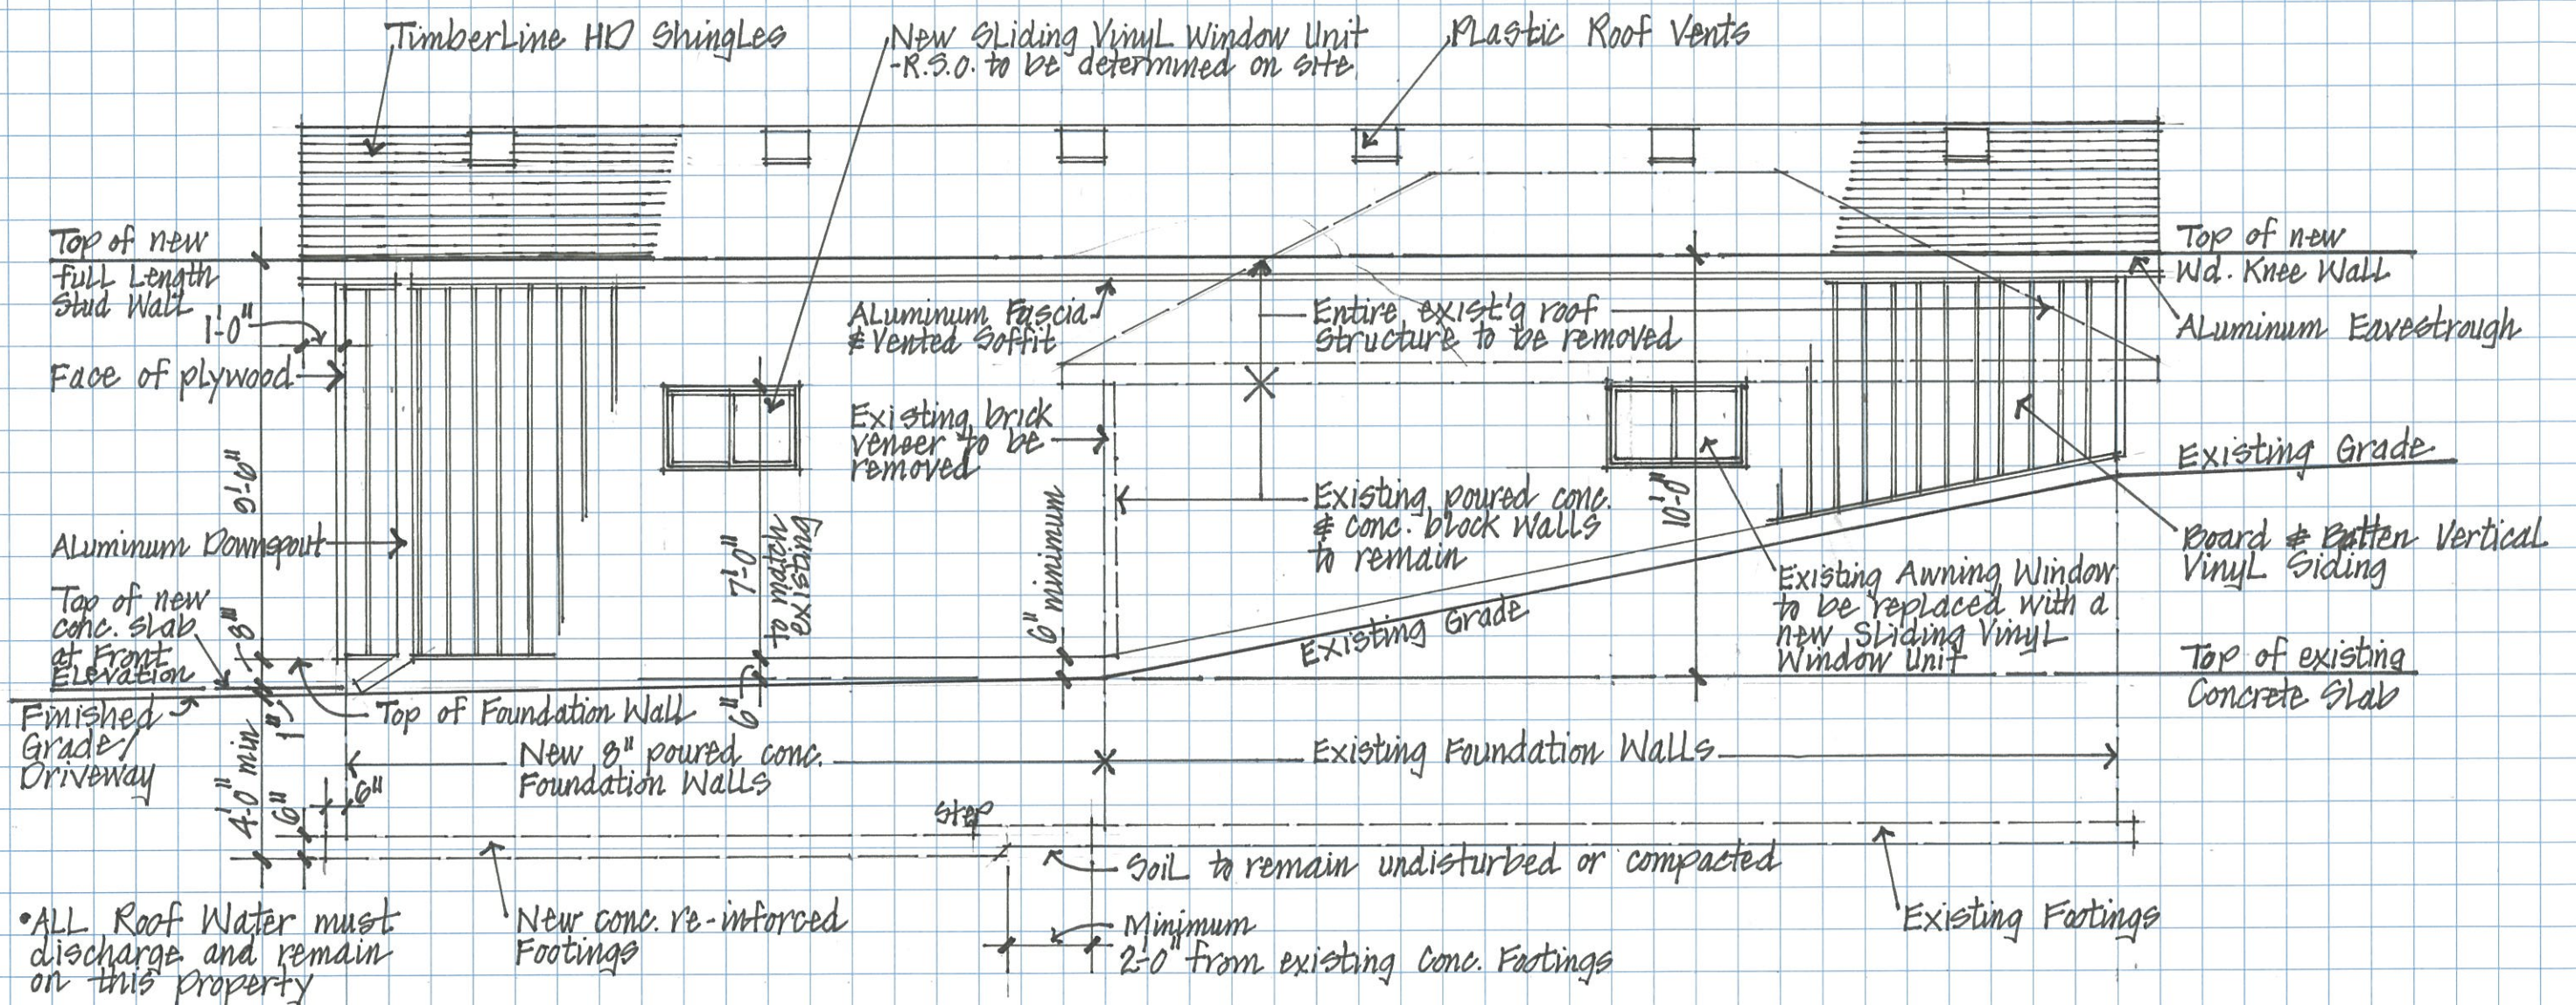 Timberline HD Shingles
New Sliding Vinyl Window Unit
-R.S.O. to be determined on site
Plastic Roof Vents
Top of new
full Length
Stud Wall
1'-0"
Face of plywood
9'-0"
Aluminum Downspout
Top of new
conc. slab
at Front
Elevation
8"
Finished
Grade/
Driveway
1"
4'-0" min
6"
6"
Top of Foundation Wall
New 8" poured conc.
Foundation Walls
Aluminum Fascia
& Vented Soffit
Existing brick
veneer to be
removed
7'-0"
to match
existing
6"
6" minimum
Entire exist'g roof
structure to be removed
Existing poured conc.
& conc. block walls
to remain
10'-0"
Existing Grade
Existing Awning Window
to be replaced with a
new Sliding Vinyl
Window Unit
Top of new
Wd. Knee Wall
Aluminum Eavestrough
Existing Grade
Board & Batten Vertical
Vinyl Siding
Top of existing
Concrete Slab
Existing Foundation Walls
Step
Soil to remain undisturbed or compacted
Minimum
2'-0" from existing Conc. Footings
Existing Footings
New conc. re-inforced
Footings
•ALL Roof Water must
discharge and remain
on this property